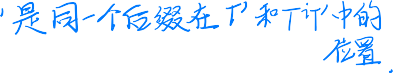 是同一个后缀在T'和T[i]'中的
位置.